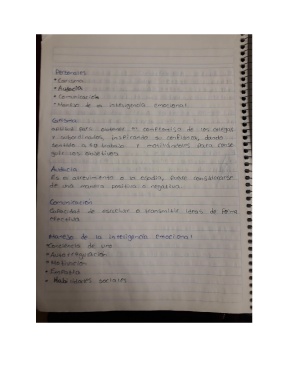 Personales
• Carisma
• Audacia
• Comunicación
• Manejo de la inteligencia emocional
Carisma
Habilidad para
subordinados, inspirando su confianza, dando
sentido a su trabajo y motivándolos para
sus objetivos
Audacia
Es el atrevimiento o la osadía, puede considerarse
de una manera positiva o negativa.
Comunicación
Capacidad de escuchar o transmitir ideas de forma
efectiva
Manejo de la Inteligencia Emocional
• Conciencia de uno
• Autorregulación
• Motivación
• Empatía
• Habilidades sociales